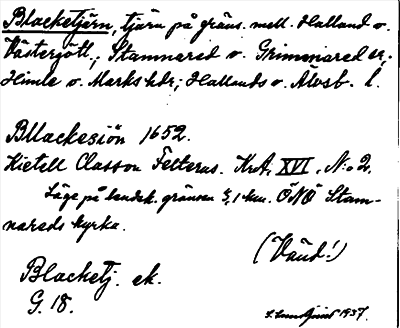 Blacketjärn, tjärn på gräns. mell. Halland o.
Västergötl.; Stamnared o. Grimmared sr;
Himle o. Marks hdr; Hallands o. Älvsb. l.
Bllackesiön 1652.
Kietell Classon Felterus. KrA, XVI, N:o 2.
Läge på landsk. gränsen 5,1 km. ÖNÖ Stam-
nareds kyrka.
(Vänd!)
Blacketj. ek.
G. 18.
1937.